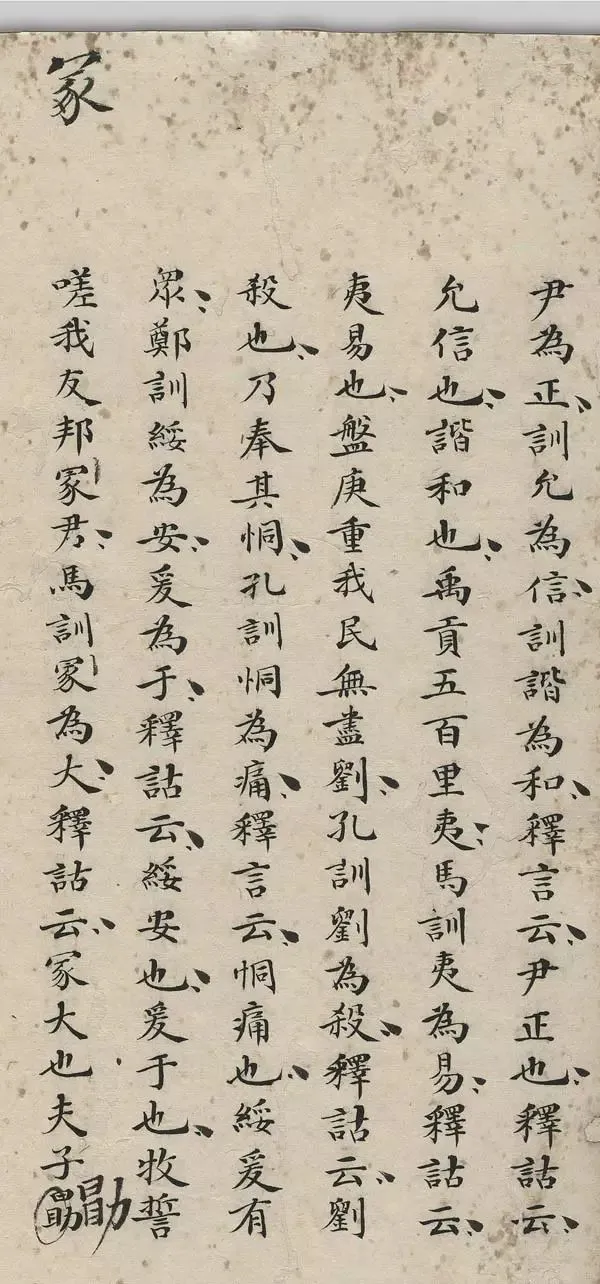 尹為正、訓允為信、訓諧為和、釋言云、尹正也、釋詁云、
允信也、諧和也、禹貢五百里夷、馬訓夷為易、釋詁云、
夷易也、盤庚重我民無盡劉、孔訓劉為殺、釋詁云、劉
殺也、乃奉其恫、孔訓恫為痛、釋言云、恫痛也、綏爰有
眾、鄭訓綏為安、爰為于、釋詁云、綏安也、爰于也、牧誓
嗟我友邦冢君、馬訓冢為大、釋詁云、冢大也夫子勗
勖
冢